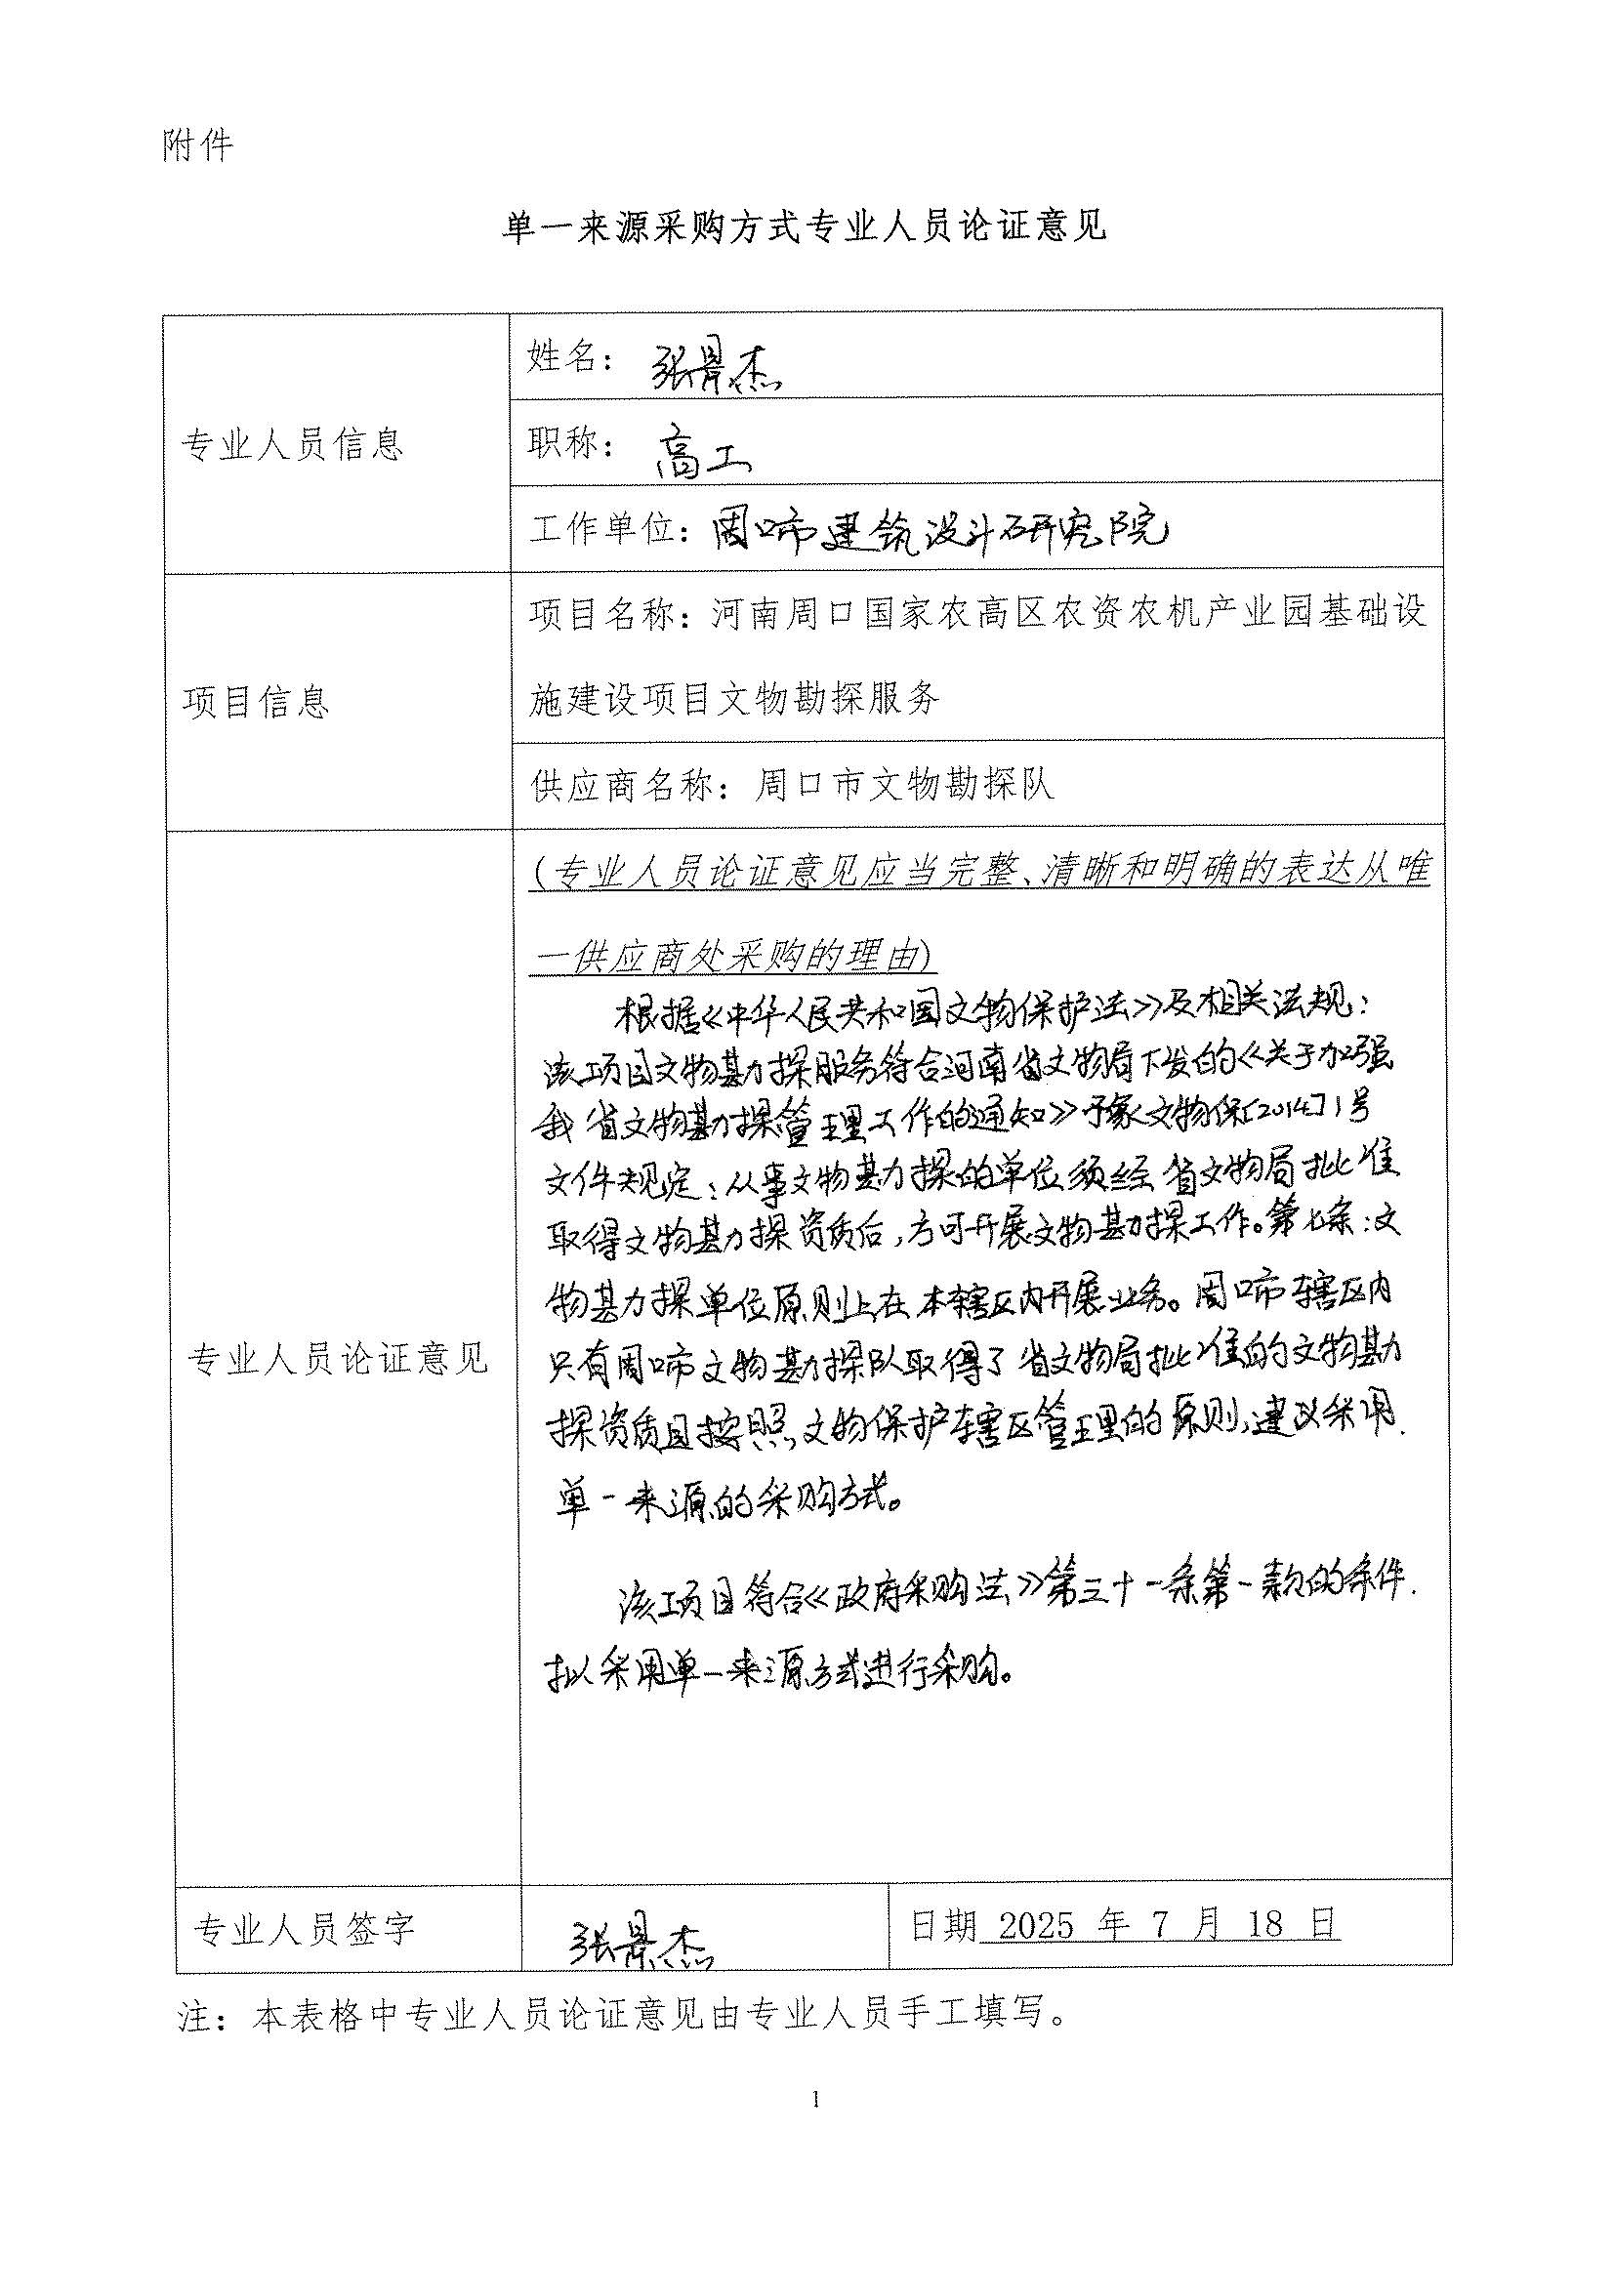 附件
单一来源采购方式专业人员论证意见
专业人员信息
姓名：张景杰
职称：高工
工作单位：周口市建筑设计研究院
项目信息
项目名称：河南周口国家农高区农资农机产业园基础设
施建设项目文物勘探服务
供应商名称：周口市文物勘探队
专业人员论证意见
(专业人员论证意见应当完整、清晰和明确的表达从唯
一供应商处采购的理由)
根据《中华人民共和国文物保护法》及相关法规：
该项目文物勘探服务符合河南省文物局下发的《关于加强
我省文物勘探管理工作的通知》豫文物保[2014]1号
文件规定：从事文物勘探的单位须经省文物局批准
取得文物勘探资质后，方可开展文物勘探工作。第七条：文
物勘探单位原则上在本辖区内开展业务。周口市辖区内
只有周口市文物勘探队取得了省文物局批准的文物勘
探资质且按照文物保护辖区管理的原则，建议采用
单一来源的采购方式。
该项目符合《政府采购法》第三十一条第一款的条件.
拟采用单一来源方式进行采购。
专业人员签字
张景杰
日期 2025 年 7 月 18 日
注：本表格中专业人员论证意见由专业人员手工填写。
1